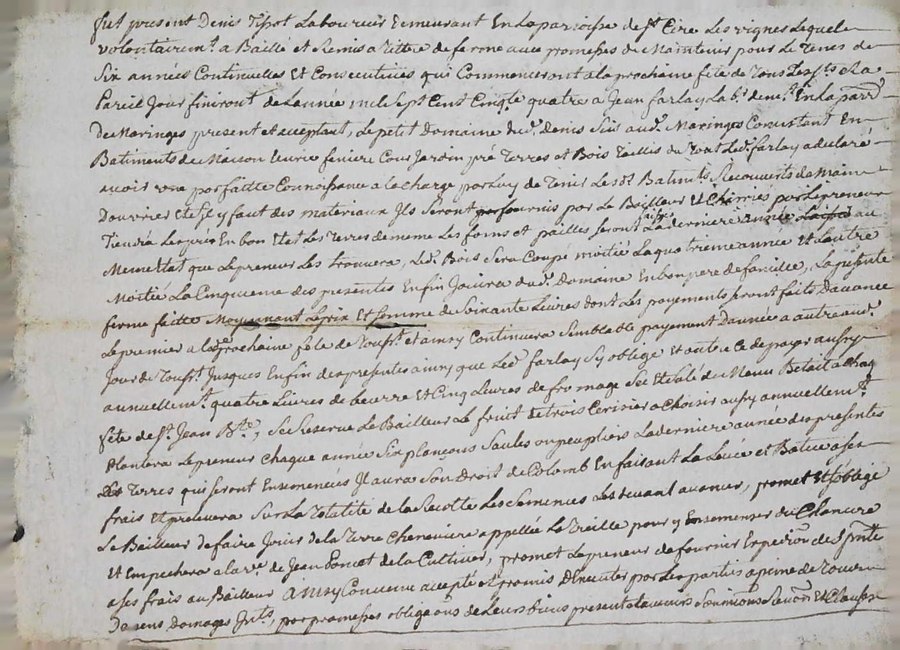 fut present Denis Tissot Laboureur Demeurant En La paroisse de St. Cire Les vignes Lequel
volontairemt. a Baillé et Remis a tittre de ferme avec promesses de Maintenir pour Le tems de
Six années Continuelles Et Consecutives qui Commenceront a la prochaine fête de Tous Les Sts. Et a
Pareil Jour finiront de Lannée mil Sept Cent Cinqte. quatre a Jean farlay Lab. demt. En La parr.
De Maringes present et acceptant, Le petit Domaine dud. Denis Sçis aud. Maringes Consistant En
Batiments de Maison Ecurie feniere Cour Jardin pré Terres et Bois Taillis du Tout Led. farlay a declaré
avoir une parfaitte Connoissance a la Charge par Luy de Tenir Les ds. Batimts. Recouverts a la main
Douvrier Et Sil y faut des materiaux Ils Seront fournis par Le Bailleur Et Charriés par Le preneur
Tiendra Les prés En bon Etat Les Terres de meme Les foins et pailles Seront Laderniere année Laissé au
Meme Etat que Le preneur Les trouvera, Led. Bois Sera Coupé moitié La quatrieme année Et Lautre
Moitié La Cinquieme des presentes Enfin Jouira dud. Domaine En bon pere de famille, La presente
ferme faitte Moyennant Le prix Et Somme de Soixante Livres dont Les payements Seront faits Davance
Le premier a La prochaine fête de Toussts. et ainsy Continuera Semblable payement Dannée a autre aud.
Jour de Toussts. Jusques Enfin des presentes ainsy que Led. farlay Sy oblige Et outre Ce de payer aussy
annuellemt. quatre Livres de beurre Et Cinq Livres de fromage Sec Et Salé du Menu Betail a Chaq
fête de St. Jean Bte., Se Reserve Le Bailleur Le fruit de trois Cerisier a Choisir aussy annuellemt.
Plantera Le preneur Chaque année Six plançons Saules ou peupliers Laderniere année des presentes
Les Terres qui Seront Ensemencées Il aura Son Droit de Colomb En faisant La Levée et Batue a ses
frais Et prelevera Sur La Totalité de la Recolte Les Semences Les ayant avancé, promet Et Soblige
Le Bailleur De faire Jouir de la Terre Cheneviere appellée Le Treille pour y Ensemenser du Chanvre
Et Empechera a la ve. de Jean Poncet de la Cultiver, promet Le preneur de fournir Expedition des presentes
a ses frais au Bailleur ainsy Convenu accepté Et promis Executer par Les parties a peine de Tous
Depens Domages Ints., par promesses obligaons de Leurs biens presents et avenirs Soumissions Renons. Et Clauses